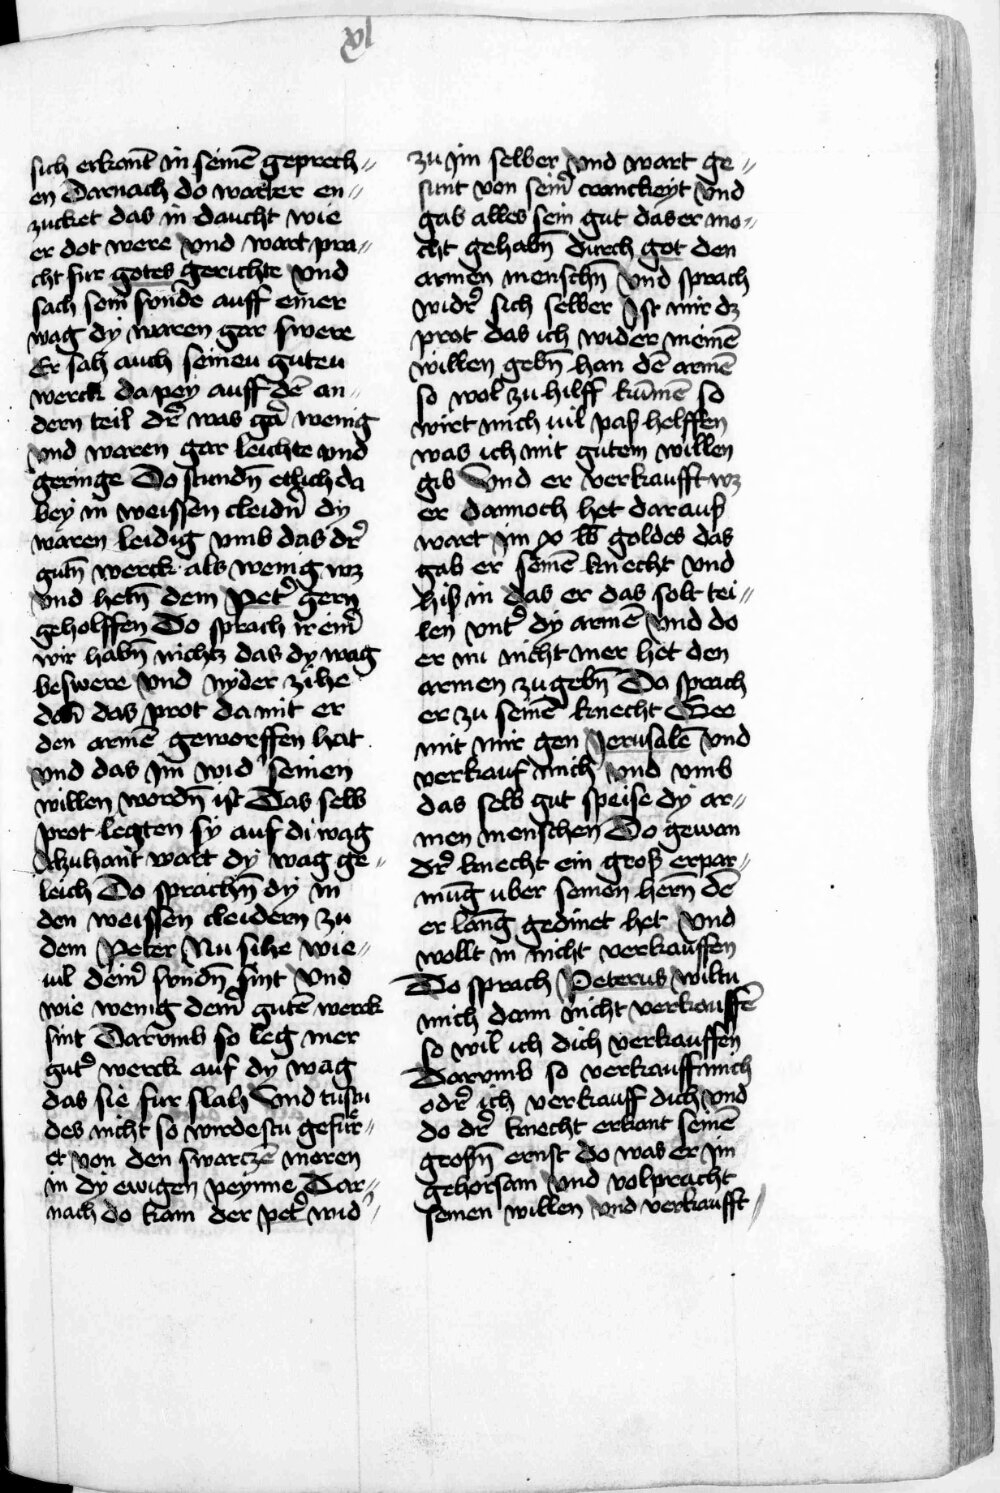 xl
sich erkant in seinē geprech〃
en Darnach do wart er en〃
zucket das in daucht wie
er dot were vnd wart pra〃
cht fur gotes gerichte vnd
sach sein svnde auff einer
wag dy waren gar swere
Er sah auch seinen guten
werck da pey auff dē an〃
dern teil dr̄ was gar wenig
vnd waren gar leichte vnd
geringe Do stundn̄ etlich da
bey in weissen cleidn̄ dy
waren leidig vmb das dr̄
gutn̄ werck als wenig wz
vnd hetn̄ dem Petr̄ gern
geholffen Do sprach ir ein̄
wir habn̄ nichtz das dy wag
beswere vnd nyder zihe
dan̄ das prot da mit er
den armē geworffen hat
vnd das im wid̄ seinen
willen wordn̄ ist Das selb
prot legten sy auf di wag
Alzuhant wart dy wag ge〃
leich Do sprachn̄ dy in
den weissen cleidern zu
dem Peter Nu sihe wie〃
uil dein̄ svndn̄ sint vnd
wie wenig dein̄ gutē werck
sint Darvmb so leg mer
gutr̄ werck auf dy wag
das sie fur slah Vnd tustu
des nicht so wirdestu gefur〃
et von den swarczē moren
in dy ewigen peynne Dar〃
nach do kam der petr̄ wid̄〃
zu im selber vnd wart ge〃
sunt von sein̄ cranckeyt vnd
gab alles sein gut das er mo〃
cht gehabn̄ durch got den
armen menschn̄ vnd sprach
widr̄ sich selber Ist mir dz
prot das ich wider meinē
willen gebn̄ han dē armē
so wol zu hilff kūmē so
wirt mich uil paß helffen
was ich mit gutem willen
gib Vnd er verkaufft wz
er dannoch het darauß
wart im x lb̄ goldes das
gab er seinē knecht vnd
hiß in das er das solt tei〃
len vntr̄ dy armē vnd do
er nu nicht mer het den
armen zu gebn̄ Da sprach
er zu seinē knecht Gee
mit mir gen Jerusalē vnd
verkauf mich vnd vmb
das selb gut speise dy ar〃
men menschen Do gewan
dr̄ knecht ein groß erpar〃
mūg uber seinen hern̄ dē
er lang gedinet het vnd
wollt in nicht verkauffen
Do sprach Peterus wiltu
mich dann nicht verkauffē
so wil ich dich verkauffen
Darvmb so verkauff mich
odr̄ ich verkauff dich vnd
do dr̄ knecht erkant seinē
grosn̄ ernst do was er im
gehorsam vnd volpracht
seinen willen vnd verkaufft〃